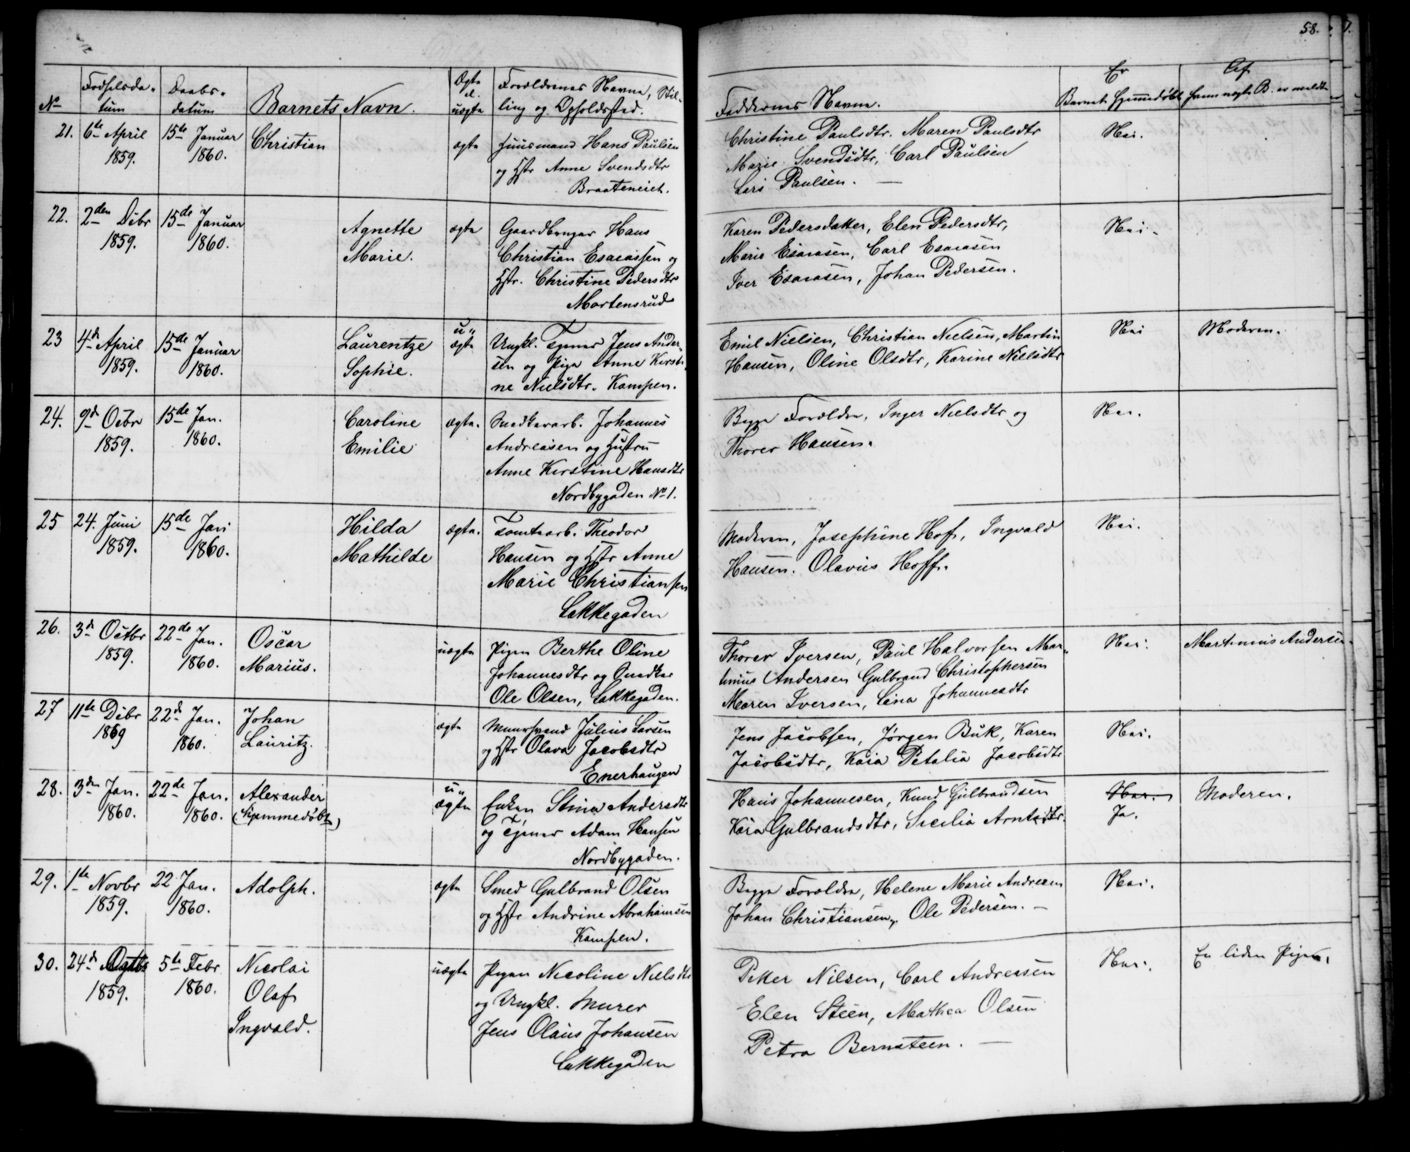 58.
No Fødselsdatum Daabsdatum Barnets Navn. Ægte el. uægte Forældrenes Navne, Stilling og Opholdssted. Faddernes Navne. Er Barnet hjemmedøbt Af hvem uegte B. er meldt
21. 6te April 1859. 15de Januar 1860. Christian ægte Huusmand Hans Paulsen
og Hstr Anne Svendsdtr
Braateneiet.
Christine Paulsdtr. Maren Paulsdtr
Marie Svendsdtr, Carl Paulsen
Lars Paulsen. —
Nei.
22. 2den Dcbr 1859. 15de Januar 1860. Agnette Marie. ægte Gaardbruger Hans
Christian Esaiassen og
Hstr. Christine Pedersdtr
Mortensrud
Karen Pedersdatter, Elen Pedersdtr,
Marie Esaiasen, Carl Esaiasen
Iver Esaiasen, Johan Pedersen.
Nei.
23 4de April 1859. 15de Januar 1860. Laurentze Sophie. u" ægte Ungkl. Tjener Jens Ander-
sen og Pige Anne Kirsti-
ne Nielsdtr. Kampen.
Emil Nielsen, Christian Nielsen, Martin
Hansen, Oline Olsdtr, Karine Nielsdtr
Nei Moderen.
24. 9de Octbr 1859. 15de Jan. 1860. Caroline Emilie ægte. Johannes
Andreasen og Hustru
Anne Kirstine Hansdtr
Nordbygaden No 1.
Begge Forældre, Inger Nielsdtr og
Thorer Hansen.
Nei.
25 24. Juni 1859. 15de Jan. 1860. Hilda Mathilde ægte. Tomtearb. Theodor
Hansen og Hstr Anne
Marie Christiansen
Lakkegaden
Moderen, Josephine Hof, Ingvald
Hansen. Olavus Hoff.
Nei.
26. 3de Octbr 1859. 22de Jan. 1860. Oscar Marius. uægte Pigen Berthe Oline
Johannesdtr og
Ole Olsen, Lakkegaden.
Thorer Iversen, Paul Halvorsen Mar-
tinius Andersen Gulbrand Christophersen
Maren Iversen, Lina Johannesdtr
Nei. Martinius Andersen.
27 11te Dcbr 1859 22de Jan. 1860. Johan Lauritz. ægte Muursvend Julius Larsen
og Hstr Olava Jacobsdtr
Enerhaugen
Jens Jacobsen, Jørgen Buk, Karen
Jacobsdtr, Kaia Petalia Jacobsdtr
Nei.
28. 3de Jan. 1860. 22de Jan. 1860. Alexander (Hjemmedøbt) u" ægte Enken Stina Andersdtr
og Tjener Adam Hansen
Nordbygaden.
Hans Johannesen, Knud Gulbrandsen
Kaia Gulbrandsdtr, Sicilia Arntsdtr.
Nei. Ja. Moderen.
29. 1te Novbr 1859. 22 Jan. 1860. Adolph. ægte Smed Gulbrand Olsen
og Hstr Andrine Abrahamsen
Kampen.
Begge Forældre, Helene Marie Andresen
Johan Christiansen, Ole Pedersen. —
Nei.
30. 24de 1859. 5te Febr. 1860. Nicolai Olaf Ingvald. uægte Pigen Nicoline Nielsdtr
og Ungkl. Murer
Jens Olaus Johansen
Lakkegaden
Peter Nilsen, Carl Andreasen
Elen Steen, Mathea Olsen
Petra Bernsteen. —
Nei. En liden Pige.